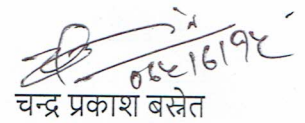 ०६५।६।१५
चन्द्र प्रकाश बस्नेत